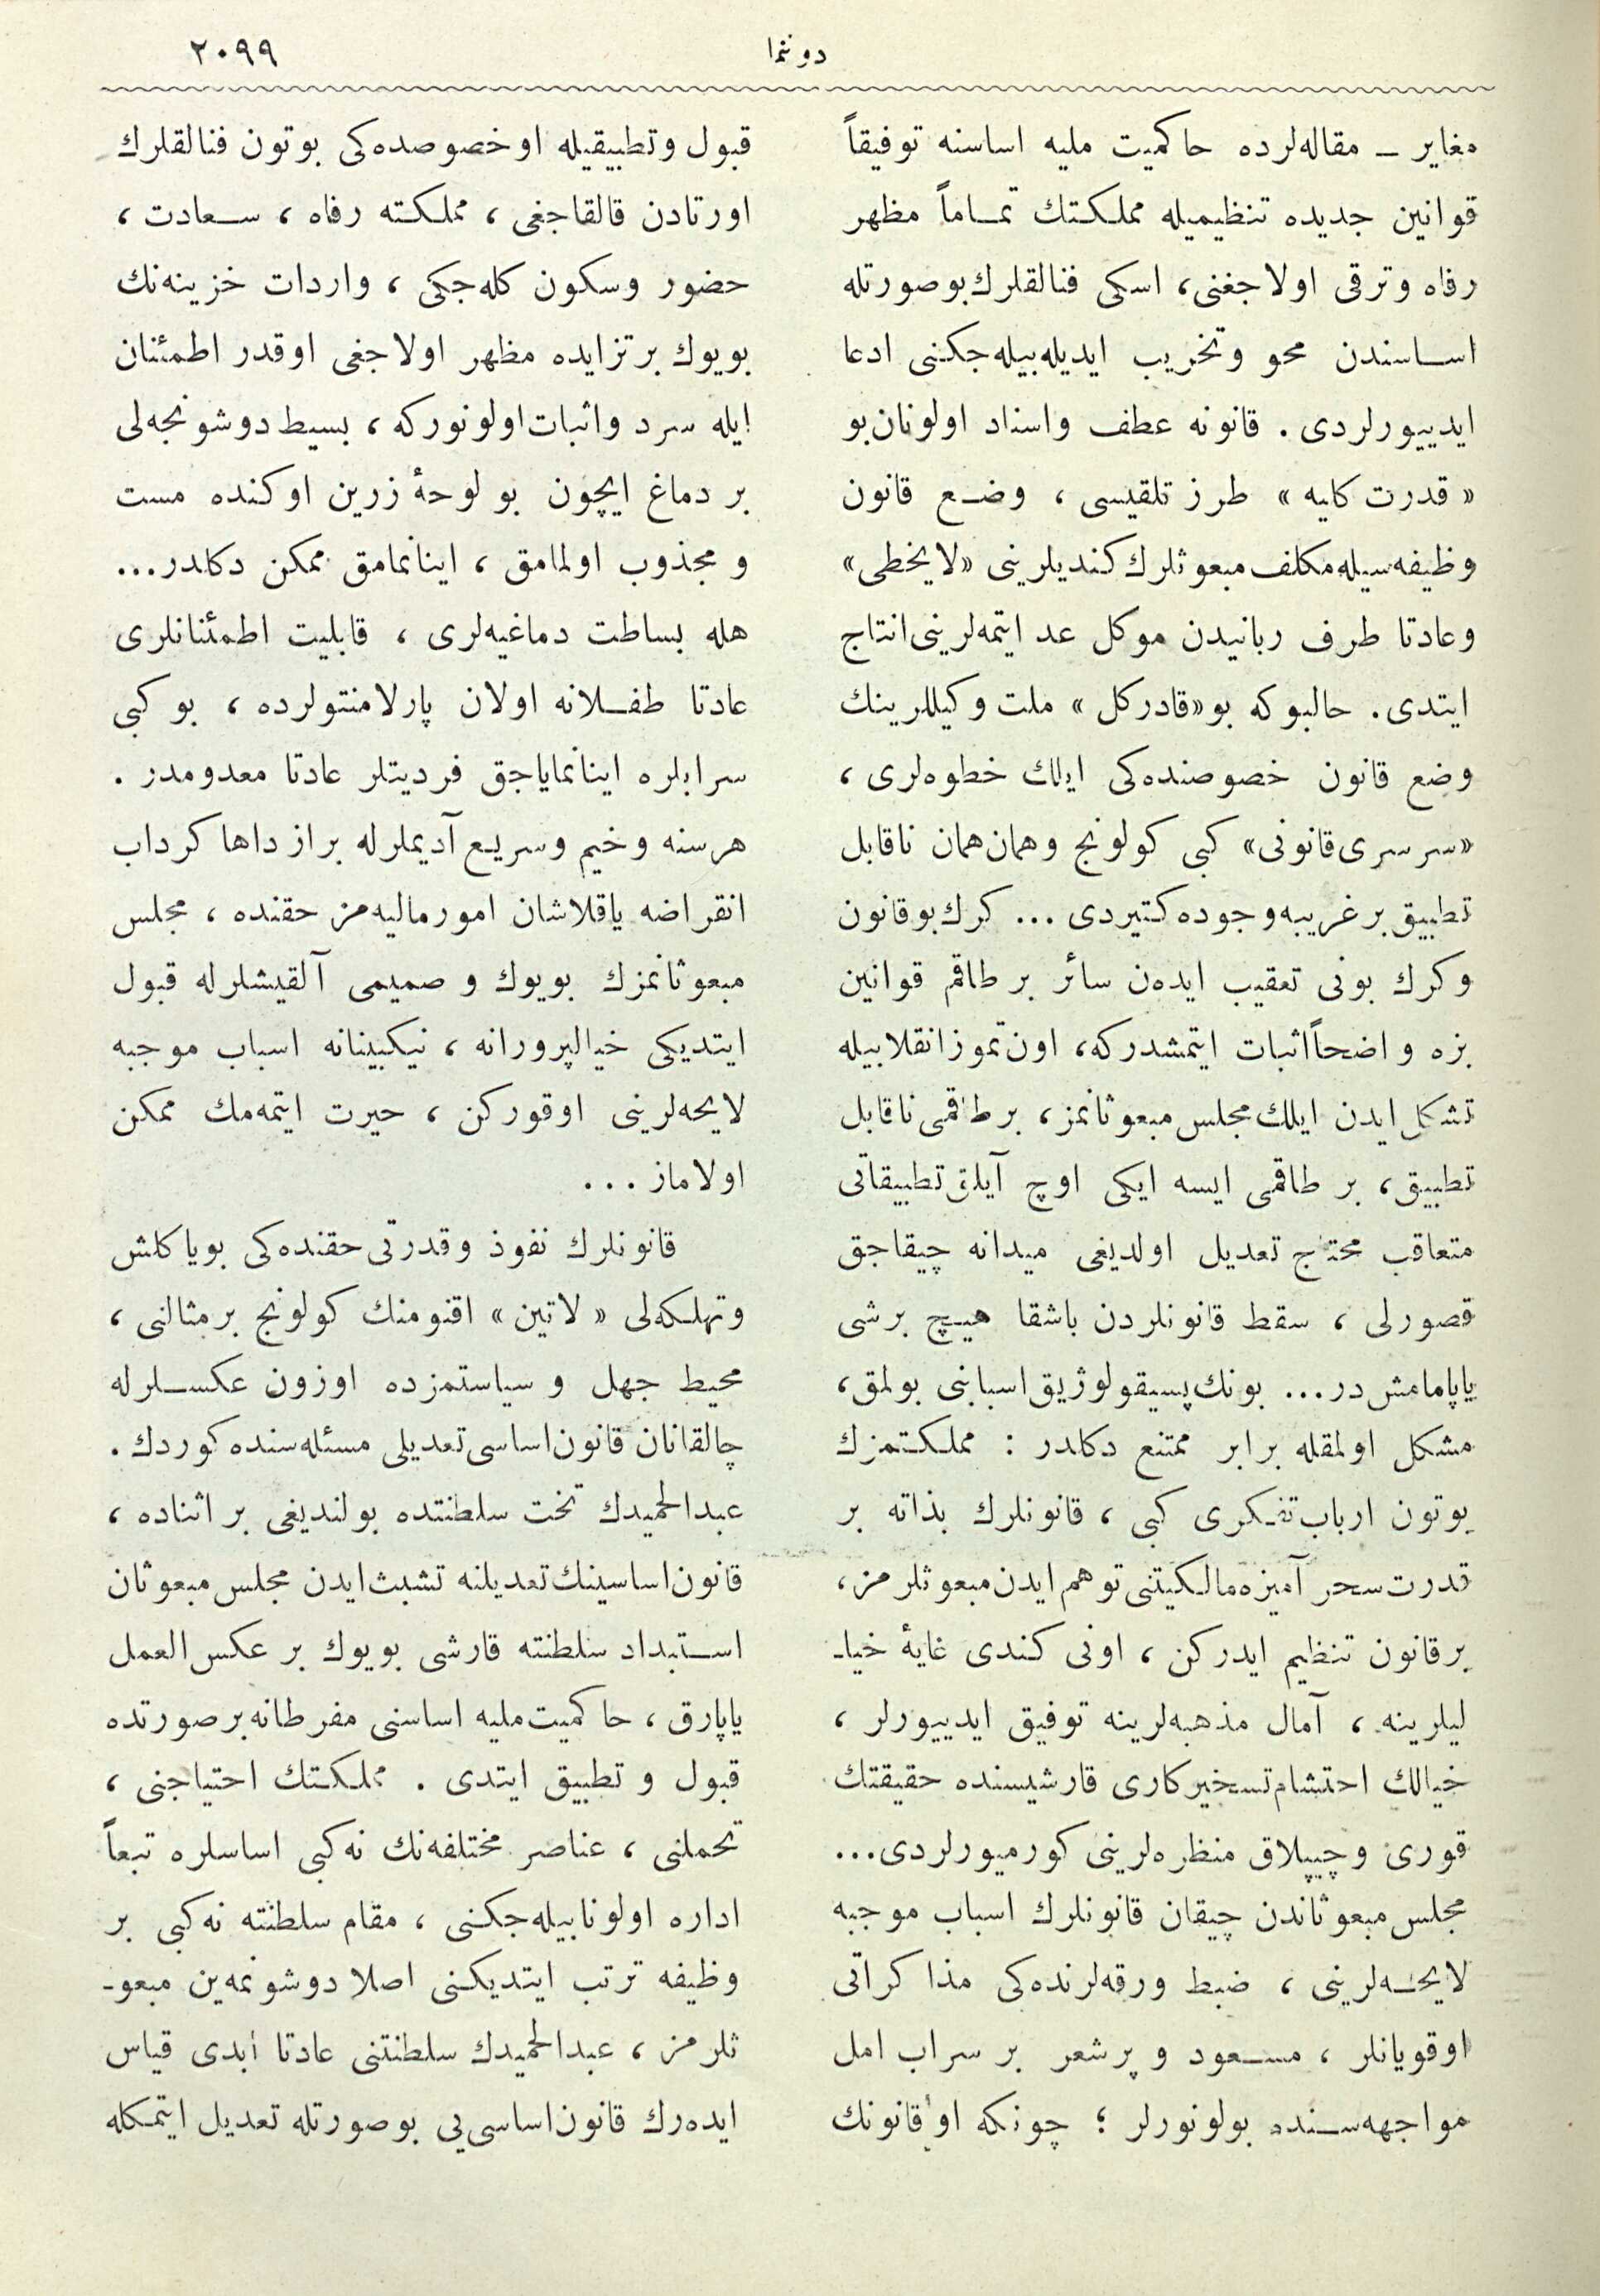 دوننما
٢٠٩٩
مغاير ـ مقاله‌لرده حاكميت مليه اساسنه توفيقاً
قوانين جديده تنظيميله مملكتك تماماً مظهر
رفاه وترقى اولاجغنى، اسكى فنالقلرك بوصورتله
اساسندن محو وتخريب ايديله‌بيله‌جكنى ادعا
ايدييورلردى . قانونه عطف واسناد اولونان بو
« قدرت كليه » طرز تلقيسى ، وضع قانون
وظيفه‌سيله مكلف مبعوثلرك كنديلرينى «لايخطى»
وعادتا طرف ربانيدن موكل عد ايتمه‌لرينى انتاج
ايتدى. حالبوكه بو «قادركل» ملت وكيللرينك
وضع قانون خصوصنده‌كى ايلك خطوه‌لرى ،
«سرسرى قانونى» كبى كولونج وهمان همان ناقابل
تطبيق بر غريبه وجوده كتيردى ... كرك بو قانون
وكرك بونى تعقيب ايده‌ن سائر بر طاقم قوانين
بزه واضحاً اثبات ايتمشدركه، اون تموز انقلابيله
تشكل ايدن ايلك مجلس مبعوثانمز، بر طاقمى ناقابل
تطبيق، بر طاقمى ايسه ايكى اوچ آيلق تطبيقاتى
متعاقب محتاج تعديل اولديغى ميدانه چيقاجق
قصورلى ، سقط قانونلردن باشقا هيچ برشى
ياپامامش‌در... بونك پسيقولوژيق اسبابنى بولمق،
مشكل اولمقله برابر ممتنع دكلدر : مملكتمزك
بوتون ارباب تفكرى كبى ، قانونلرك بذاته بر
قدرت سحر آميزه مالكيتنى توهم ايدن مبعوثلرمز،
بر قانون تنظيم ايدركن ، اونى كندى غايۀ خيا-
ليلرينه ، آمال مذهبه‌لرينه توفيق ايدييورلر ،
خيالك احتشام تسخيركارى قارشيسنده حقيقتك
قورى وچيپلاق منظره‌لرينى كورميورلردى...
مجلس مبعوثاندن چيقان قانونلرك اسباب موجبه
لايحه‌لرينى ، ضبط ورقه‌لرنده‌كى مذاكراتى
اوقويانلر ، مسعود و پرشعر بر سراب امل
مواجهه‌سنده بولونورلر ؛ چونكه او قانونك
قبول وتطبيقيله اوخصوصده‌كى بوتون فنالقلرك
اورتادن قالقاجغى ، مملكته رفاه ، سعادت ،
حضور وسكون كله‌جكى ، واردات خزينه‌نك
بويوك بر تزايده مظهر اولاجغى اوقدر اطمئنان
ايله سرد واثبات اولونوركه ، بسيط دوشونجه‌لى
بر دماغ ايچون بو لوحۀ زرين اوكنده مست
و مجذوب اولمامق ، اينانمامق ممكن دكلدر...
هله بساطت دماغيه‌لرى ، قابليت اطمئنانلرى
عادتا طفلانه اولان پارلامنتولرده ، بو كبى
سرابلره اينانماياجق فرديتلر عادتا معدومدر .
هرسنه وخيم وسريع آديملرله براز داها كرداب
انقراضه ياقلاشان امور ماليه‌مز حقنده ، مجلس
مبعوثانمزك بويوك و صميمى آلقيشلرله قبول
ايتديكى خيالپرورانه ، نيكبينانه اسباب موجبه
لايحه‌لرينى اوقوركن ، حيرت ايتمه‌مك ممكن
اولاماز ...
قانونلرك نفوذ وقدرتى حقنده‌كى بو ياكلش
وتهلكه‌لى « لاتين » اقنومنك كولونج بر مثالنى ،
محيط جهل و سياستمزده اوزون عكسلرله
چالقانان قانون اساسى تعديلى مسئله‌سنده كوردك .
عبدالحميدك تخت سلطنتده بولنديغى بر اثناده ،
قانون اساسينك تعديلنه تشبث ايدن مجلس مبعوثان
استبداد سلطنته قارشى بويوك بر عكس العمل
ياپارق ، حاكميت مليه اساسنى مفرطانه بر صورتده
قبول و تطبيق ايتدى . مملكتك احتياجنى ،
تحملنى ، عناصر مختلفه‌نك نه‌كبى اساسلره تبعاً
اداره اولونابيله‌جكنى ، مقام سلطنته نه‌كبى بر
وظيفه ترتب ايتديكنى اصلا دوشونمه‌ين مبعو-
ثلرمز ، عبدالحميدك سلطنتنى عادتا ابدى قياس
ايده‌رك قانون اساسى‌يى بو صورتله تعديل ايتمكله